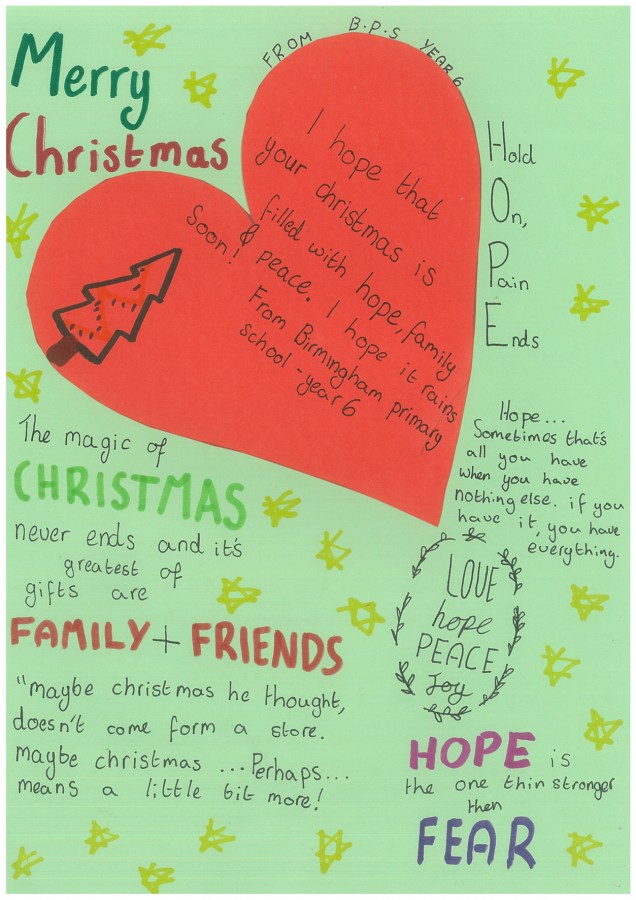 Merry
Christmas
FROM B.P.S YEAR 6
I hope that
your christmas is
filled with hope, family
& peace. I hope it rains
Soon!
From Birmingham primary
school - year 6
Hold
On,
Pain
Ends
The magic of
CHRISTMAS
never ends and it's
greatest of
gifts are
FAMILY + FRIENDS
"maybe christmas he thought,
doesn't come form a store.
maybe christmas ... Perhaps...
means a little bit more!
Hope...
Sometimes that's
all you have
when you have
nothing else. if you
have it, you have
everything.
LOVE
hope
PEACE
Joy
HOPE is
the one thin stronger
then
FEAR